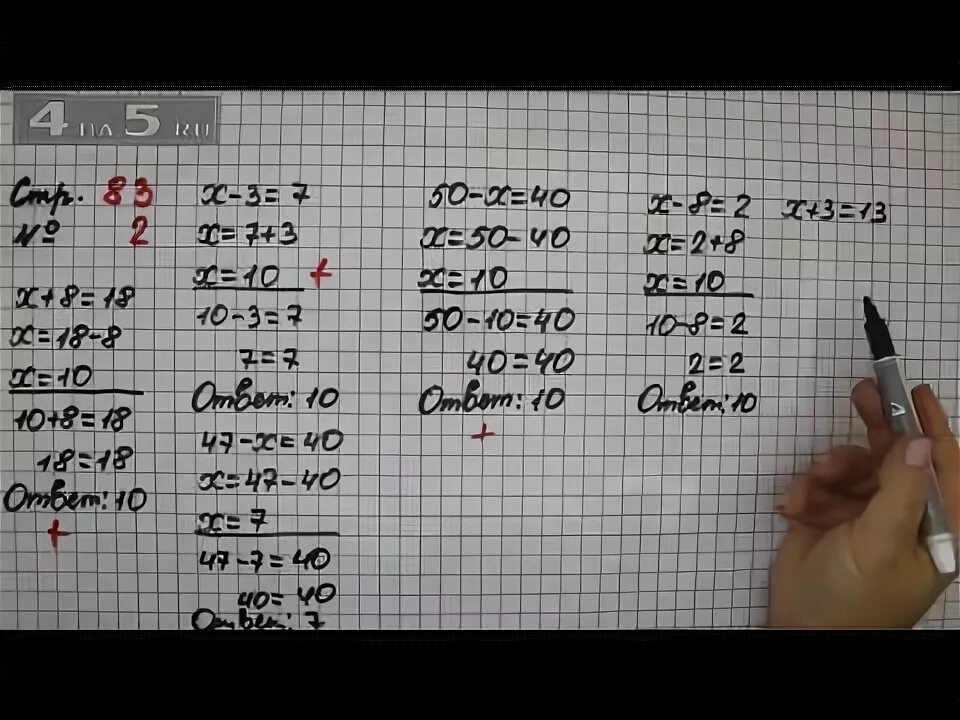 4 на 5 RU
Стр. 83
№ 2
x+8=18
x=18-8
x=10
10+8=18
18=18
Ответ: 10
+
x-3=7
x=7+3
x=10 +
10-3=7
7=7
Ответ: 10
47-x=40
x=47-40
x=7
47-7=40
40=40
Ответ: 7
50-x=40
x=50-40
x=10
50-10=40
40=40
Ответ: 10
+
x-8=2
x=2+8
x=10
10-8=2
2=2
Ответ: 10
x+3=13